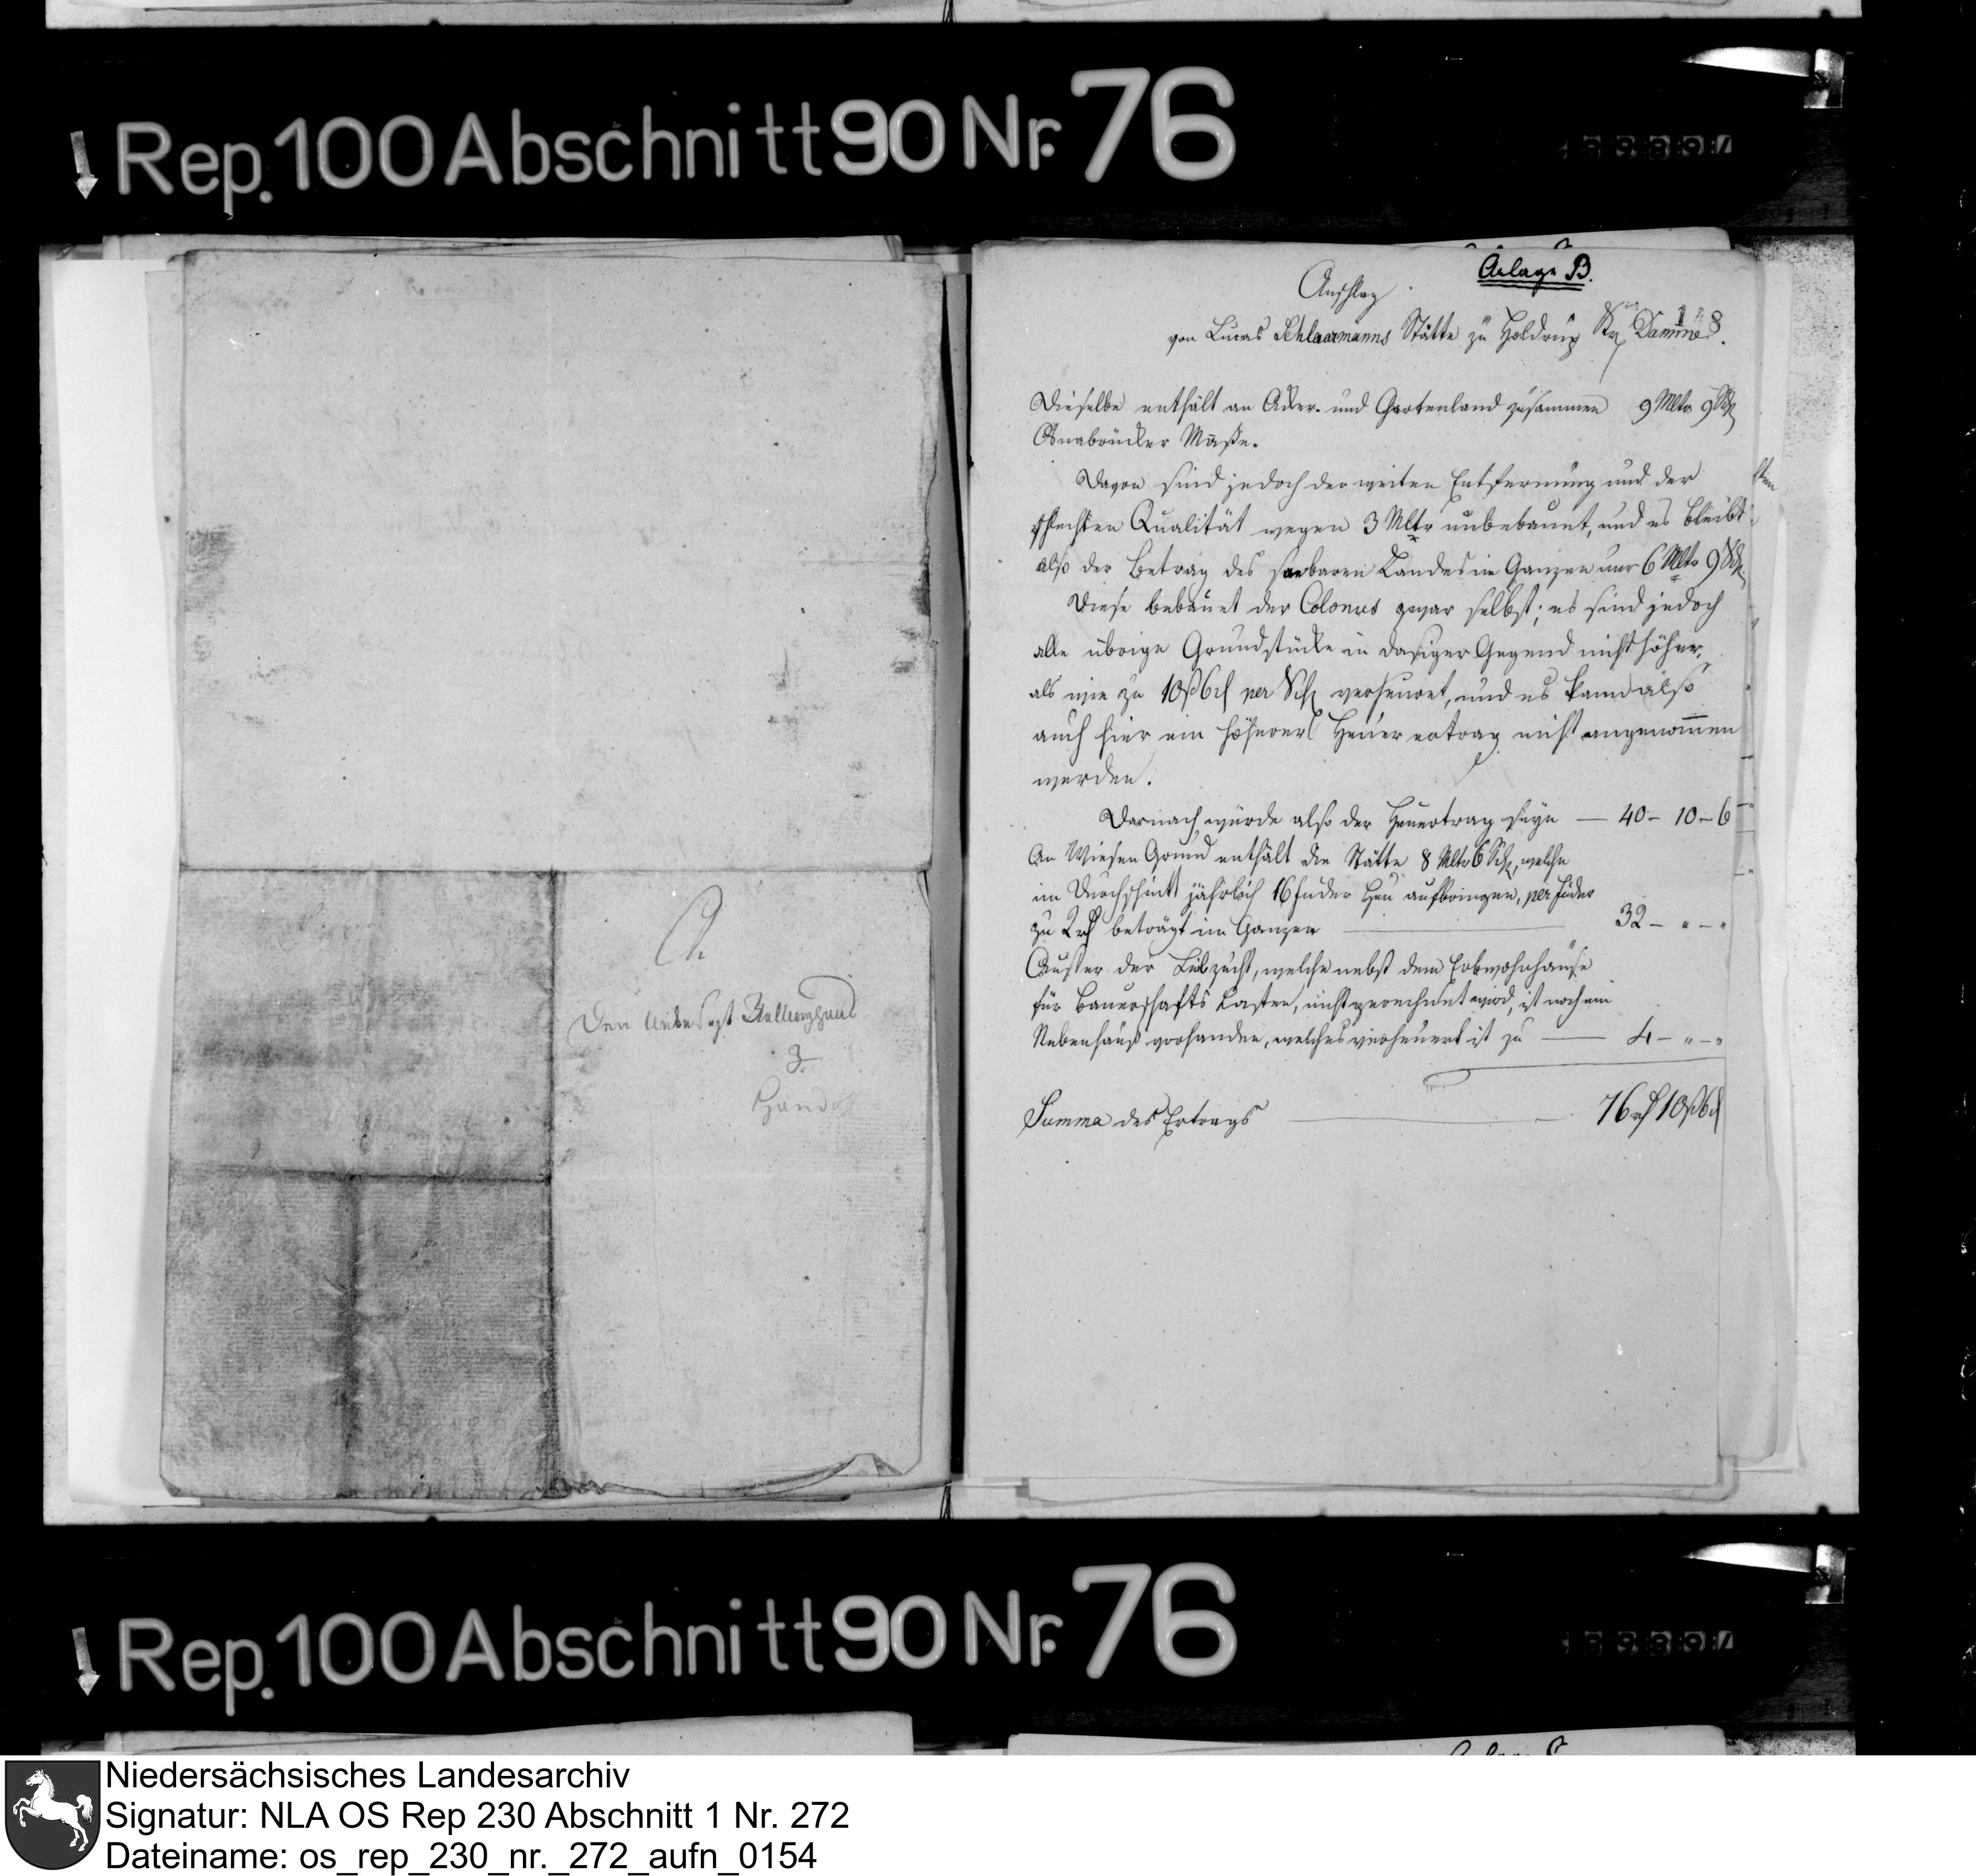 Rep. 100 Abschnitt 90 Nr. 76
Anlage B.
Anschlag
18
von Lucas Schlaarmanns Stätte zu Holdrup Ksp Damme.
Dieselbe enthält an Acker- und Gartenland zusammen 9 Mltr 9 Sch
Osnabrücker Maße.
Davon sind jedoch der weiten Entfernung und der
schlechten Qualität wegen 3 Mltr unbebauet, und es bleibt
also der Betrag des saebaren Landes im Ganzen nur 6 Mltr 9 Sch.
Diese bebauet der Colonus zwar selbst; es sind jedoch
alle übrige Grundstücke in dasiger Gegend nicht höher,
als wie zu 10 ß 6 d per Sch verheuret, und es kann also
auch hier ein höherer Heuer ertrag nicht angenom̅en
werden.
Darnach würde also der Heuertrag seyn — 40 - 10 - 6
An Wiesen Grund enthält die Stätte 8 Mltr 6 Sch, welche
im Durchschnitt jährlich 16 Fuder Heu aufbringen, per Fuder
zu 2 rth beträgt im Ganzen — 32 - " - "
Außer der Leibzucht, welche nebst dem Erbwohnhause
für Bauerschafts Lasten, nicht gerechnet wird, ist noch ein
Nebenhaus vorhanden, welches verheuert ist zu — 4 - " - "
Summa des Ertrags — 76 rth 10 ß 6 d
A.
Den
z.
Rep. 100 Abschnitt 90 Nr. 76
Niedersächsisches Landesarchiv
Signatur: NLA OS Rep 230 Abschnitt 1 Nr. 272
Dateiname: os_rep_230_nr._272_aufn_0154